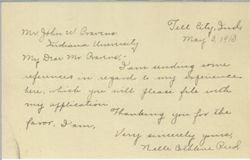 Tell City, Ind.
May 2, 1913
Mr John W Cravens
Indiana University
My Dear Mr. Cravens:-
I am sending some
references in regard to my experiences
here, which you will please file with
my application.
Thanking you for the
favor, I am,
Very sincerely yours,
Nelle Reed